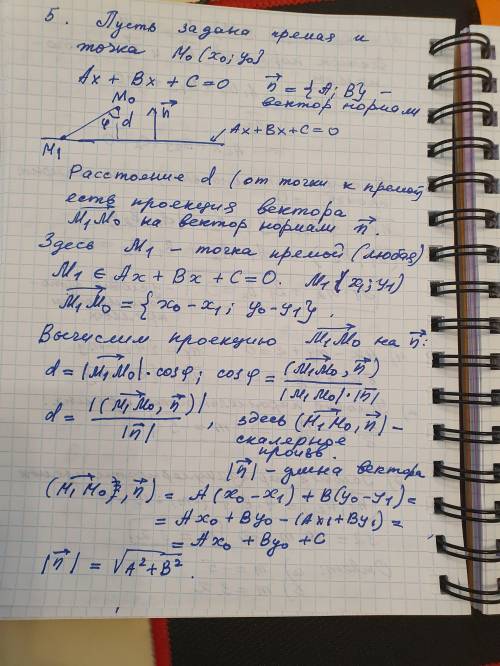 5. Пусть задана прямая и
точка M₀(x₀; y₀)
Ax + Bx + C = 0 n⃗ = {A; B} –
вектор нормали
M₀
φ d n⃗
Ax+Bx+C=0
M₁
Расстояние d (от точки к прямой)
есть проекция вектора
M₁M₀ на вектор нормали n⃗.
Здесь M₁ – точка прямой (любая)
M₁ ∈ Ax + Bx + C = 0. M₁(x₁; y₁)
M₁M₀ = {x₀ – x₁; y₀ – y₁}.
Вычислим проекцию M₁M₀ на n⃗:
d = |M₁M₀| · cosφ; cosφ = (M₁M₀, n⃗) / |M₁M₀|·|n⃗|
d = |(M₁M₀, n⃗)| / |n⃗| , здесь (M₁M₀, n⃗) –
скалярное
произв.
|n⃗| – длина вектора
(M₁M₀, n⃗) = A(x₀ – x₁) + B(y₀ – y₁) =
= Ax₀ + By₀ – (Ax₁ + By₁) =
= Ax₀ + By₀ + C
|n⃗| = √(A² + B²).